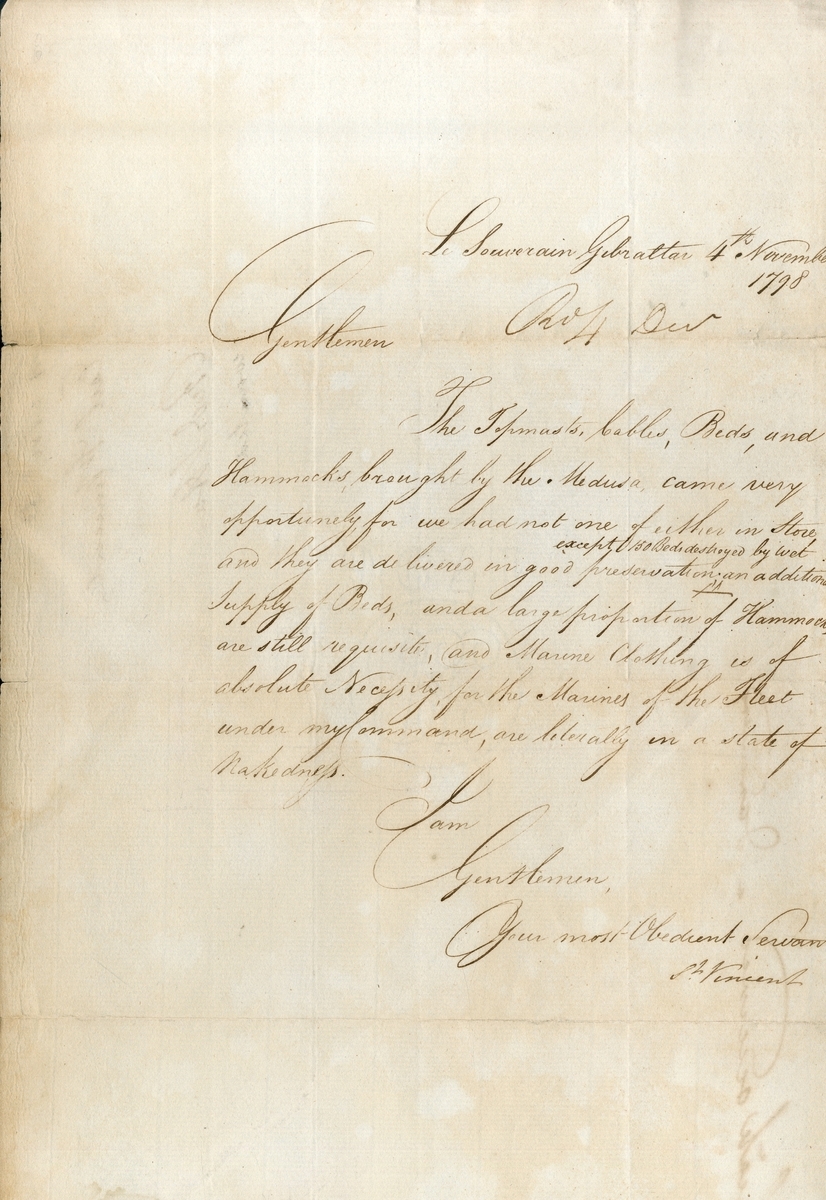 Le Souverain Gibraltar 4th Novembe
1798
Gentlemen
Rd 4 Decr
The Topmasts, Cables, Beds, and
Hammocks, brought by the Medusa, came very
opportunely, for we had not one of either in Store,
except 150 Beds destroyed by wet
and they are delivered in good preservation; an addition
Supply of Beds, and a large proportion of Hammocks
are still requisite, and Marine Clothing is of
absolute Necessity, for the Marines of the Fleet
under my Command, are literally in a state of
Nakedness.
I am
Gentlemen,
Your most Obedient Servan
St Vincent